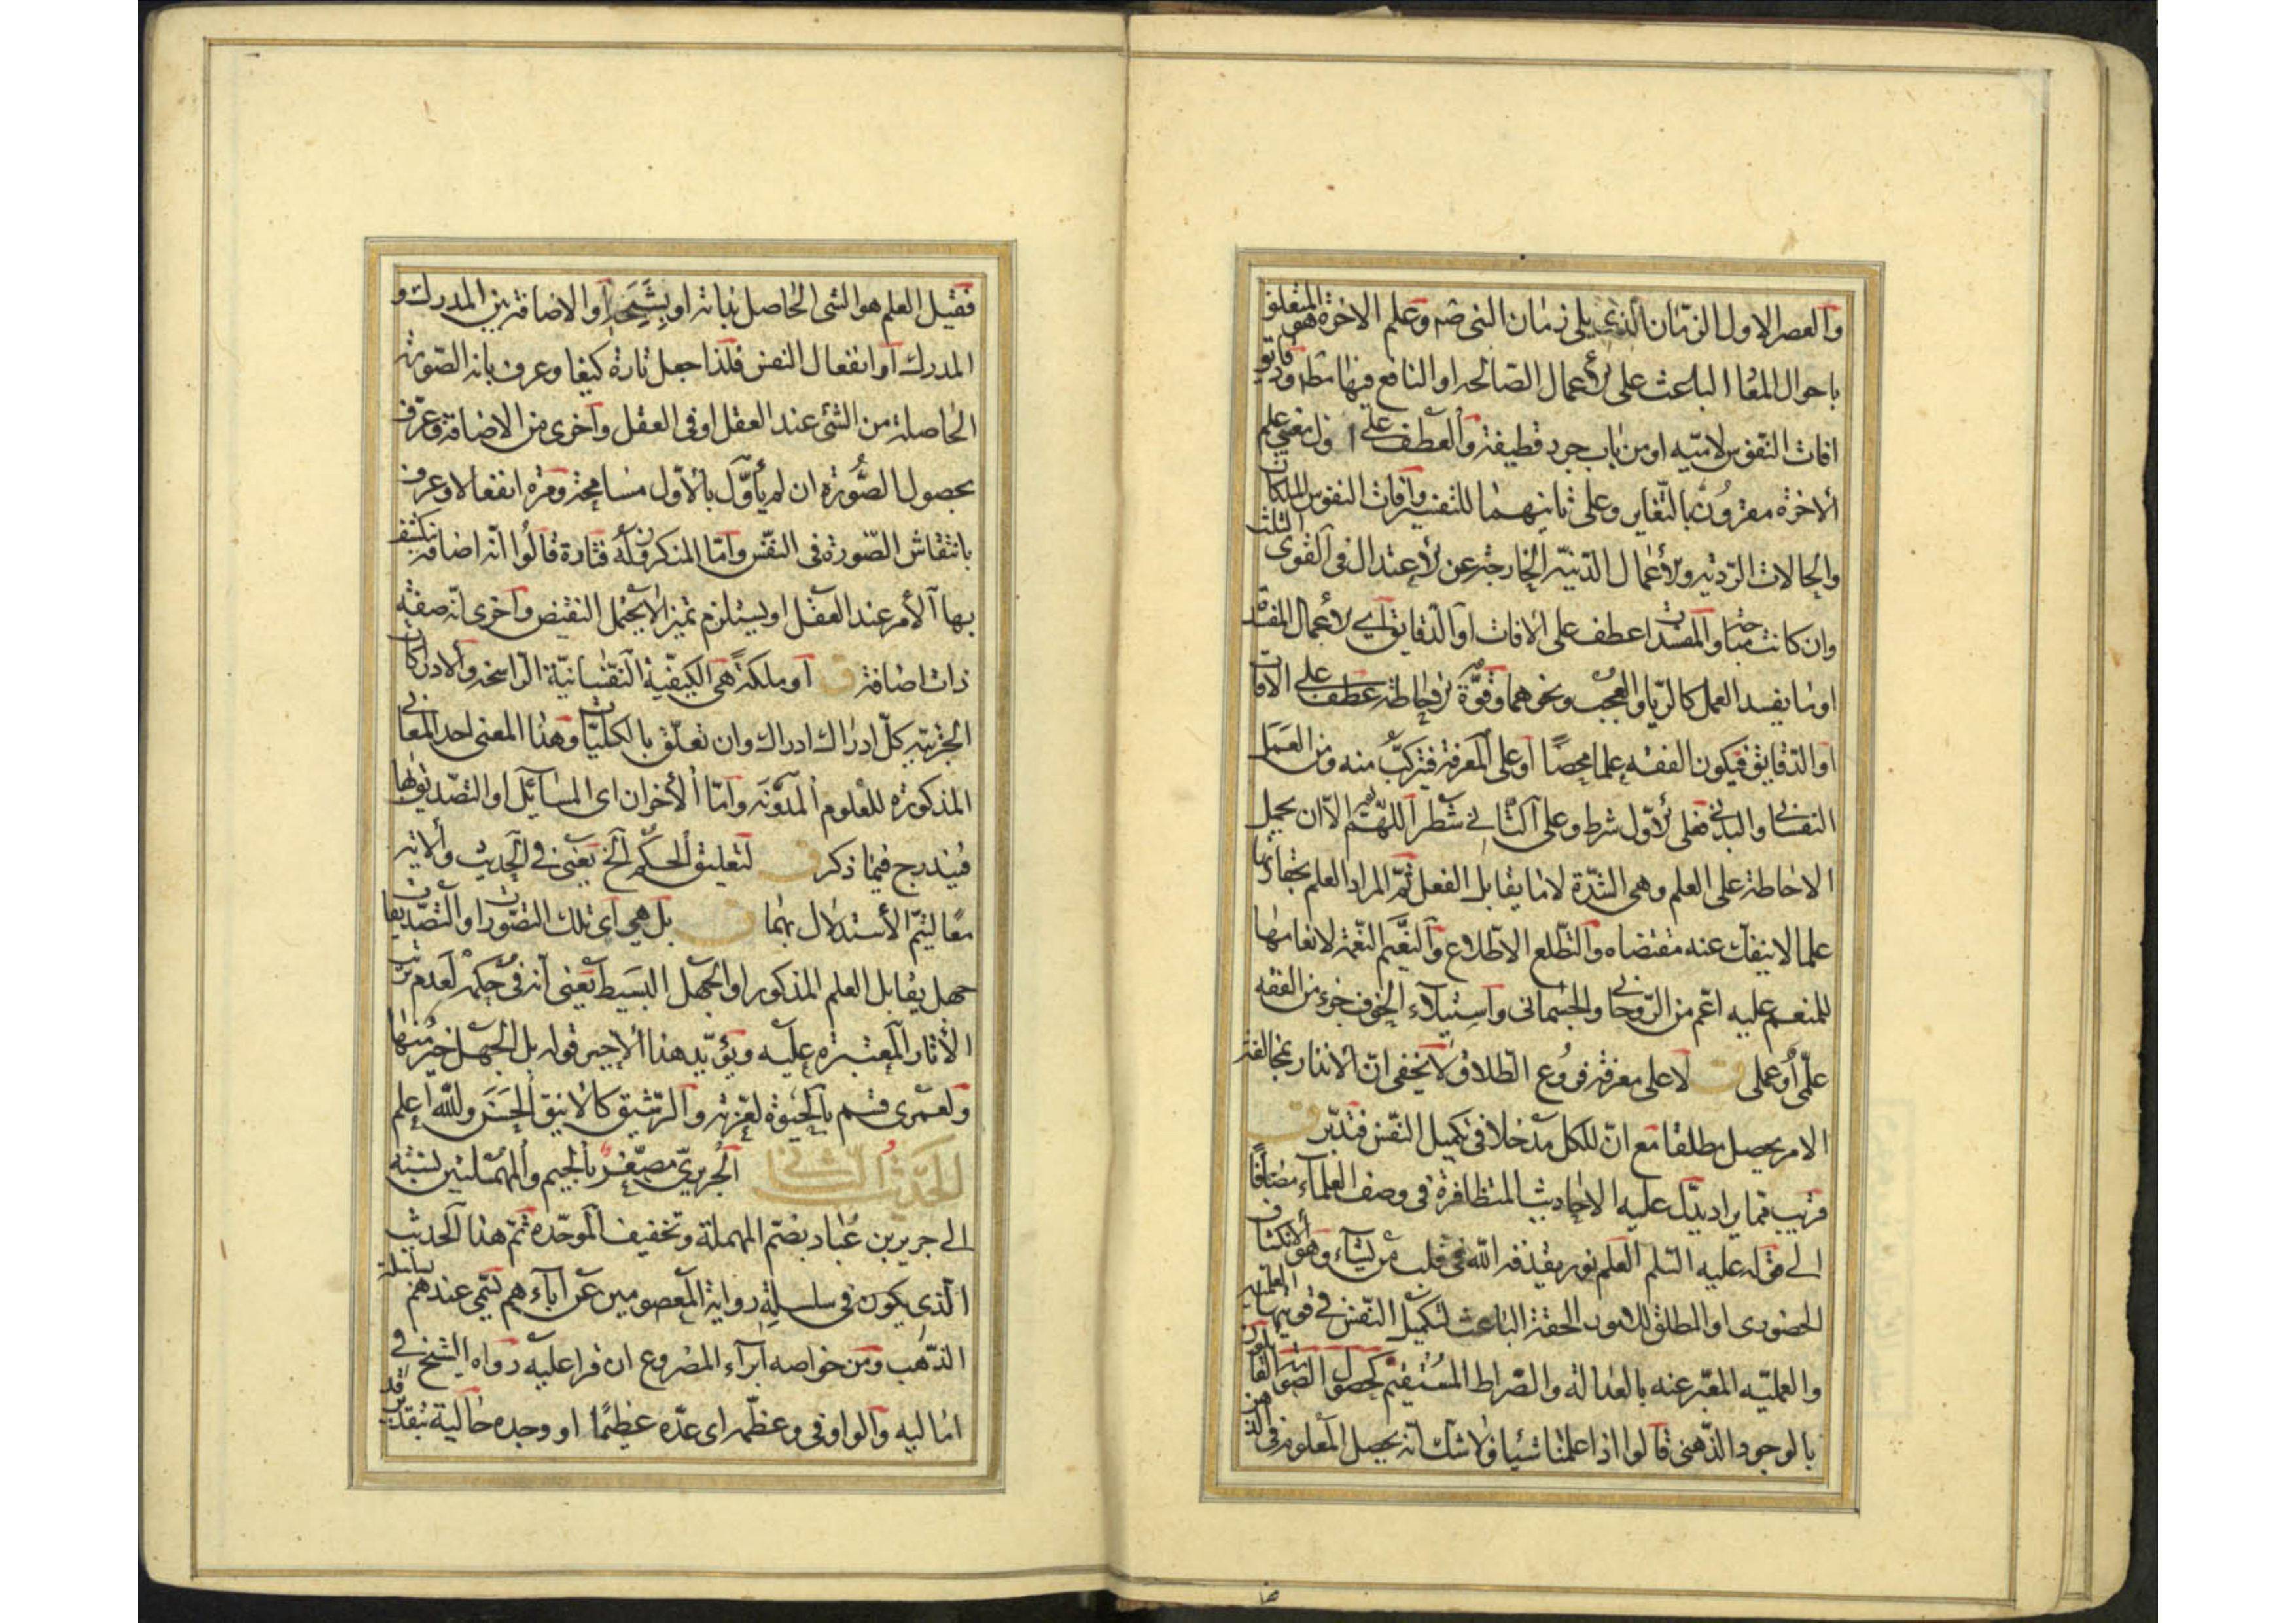 والعصر الاول الزمان الذي يلي زمان النبي صم وعلم الاخرة هو المتعلق
باحوال المعاد الباعث على الأعمال الصالحه او النافع فيها مطا ودقايق
افات النفوس لاميه او من باب جرد قطيفة والعطف على معنى علم
الاخرة مقرون بالتغاير وعلى ثانيهما للتفسير وآفات النفوس الملكات
والحالات الرديه والأعمال الدنيه الخارجة عن الاعتدال في القوى الثلث
وان كانت مباحة والمفسدات عطف على الافات او الدقايق اي الأعمال المفسدة
او ما يفسد العمل كالريا والعجب ونحوهما وقوة الاحاطة عطف على الافات
او الدقايق فيكون الفقه علما محضا او على المعرفة فتركب منه ومن العمل
النفساني والبدني فعلى الأول شرط وعلى الثاني شطر اللهم الا ان يحمل
الاحاطة على العلم وهى الشدة لا ما يقابل الفعل ثم المراد العلم بحقارتها
علما لا ينفك عنه مقتضاه والتطلع الاطلاع والنعيم النعمة لانعامها
للمنعم عليه اعم من الروحاني والجسماني واستيلاء الخوف جزء من الفقه
علمي أو عملي ق لا على معرفة فروع الطلاق ولا يخفى ان الانذار بمخالفة
الامر يحصل مطلقا مع ان للكل مدخلا في تكميل النفس فتدبر ق
قريب مما يراد يدل عليه الاحاديث المتظافرة في وصف العلماء مضافا
الى قوله عليه السلم العلم نور يقذفه الله في قلب من يشاء وهو الانكشاف
الحضورى او المطلق للامور الحقة الباعث لتكميل النفس في قوتيها العلمية
والعمليه المعبر عنه بالعدالة والصراط المستقيم كحصول الصورة القائلون
بالوجود الذهني قالوا اذا علمنا شيئا فلا شك انه يحصل المعلوم في الذهن
فقيل العلم هو الشى الحاصل بذاته او بشبحه أو الاضافة بين المدرك و
المدرك او انفعال النفس فلذا جعل تارة كيفا وعرف بانه الصورة
الحاصلة من الشئ عند العقل او في العقل وآخرى من الاضافة وعرف
بحصول الصورة ان لم يأول بالأول مسامحة ومرة انفعالا وعرف
بانتقاش الصورة في النفس وأما المنكرون له فتارة قالوا انه اضافة ينكشف
بها الأمر عند العقل او يستلزم تميزا لا يحتمل النقيض وآخرى انه صفة
ذات اضافة ق أو ملكة هي الكيفية النفسانية الراسخه والادراكات
الجزئيه كل ادراك ادراك وان تعلق بالكليات وهذا المعنى احد المعاني
المذكورة للعلوم المدونة وأما الأخران اى المسائل او التصديق بها
فيندرج فيما ذكر ق لتعليق الحكم الخ يعني في الحديث والاية
معا ليتم الأستدلال بهما ق بل هي اى تلك التصورات او التصديقات
جهل يقابل العلم المذكور او الجهل البسيط يعنى انه في حكمه لعدم ترتب
الآثار المعتبره عليه ويؤيد هذا الاخير قوله بل الجهل خير منها
ولعمرى قسم بالحيوة لعزته والرشيق كالانيق الحسن والله اعلم
الحديث الثاني الجريري مصغر بالجيم والمهملتين نسبة
الى جرير بن عباد بضم المهملة وتخفيف الموحده ثم هذا الحديث
الذي يكون في سلسلة رواية المعصومين عن آباءهم تسمى عندهم بسلسلة
الذهب ومن خواصه ابراء المصروع ان قرا عليه رواه الشيخ في
اماليه والواو في وعظم اى عده عظيما او وحده حالية بتقدير قد